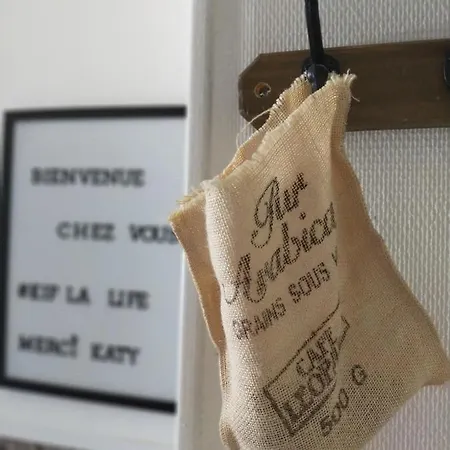 BIENVENUE
CHEZ VOUS
LA LIFE
MERCI KATY
Pur
Arabica
GRAINS SOUS V
CAFÉ
LEOP
500 G